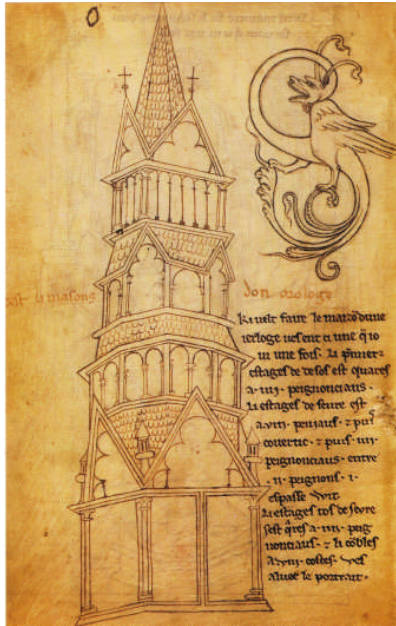 O
cest li masons don orologe
ki velt faire le maizõ dune
ierloge ves ent ci une q̃ io
vi une fois. li p̃mier
estages de desos est quares
a .iiii. peignonciaus.
li estages de seure est
a .viii. peniaus. ⁊ puis
covertic. ⁊ puis .iiii.
peignonciaus. entre
.ii. peignons .i.
espasse wit
li estages tos de seure
sest q̃res a .iiii. peig
nonciaus. ⁊ li cõbles
a .viii. costes. ves
aluec le portrait.